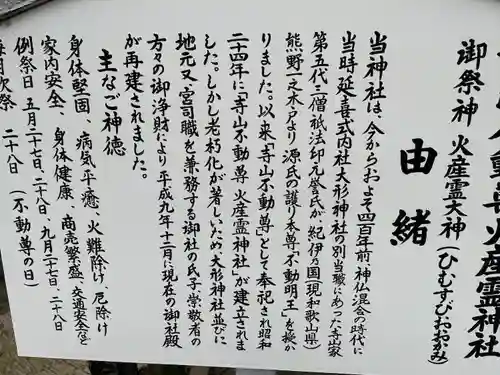 尊火産霊神社
御祭神 火産霊大神(ひむすびおおかみ)
由緒
当神社は、今からおよそ四百年前、神仏混合の時代に
当時延喜式内社大形神社の別当職にあった寺山家
第五代三僧祇法印元誉氏が紀伊の国(現和歌山県)
熊野一之木戸より源氏の護り本尊「不動明王」を授か
りました。以来「寺山不動尊」として奉祀され昭和
二十四年に「寺山不動尊 火産霊神社」が建立されま
した。しかし老朽化が著しいため大形神社並びに
地元又、宮司職を兼務する御社の氏子崇敬者の
方々の御浄財により平成九年十二月に現在の御社殿
が再建されました。
主なご神徳
身体堅固、病気平癒、火難除け、厄除け
家内安全、身体健康、商売繁盛、交通安全など
例祭日 五月二十七日、二十八日、九月二十七日、二十八日
毎月次祭 二十八日(不動尊の日)